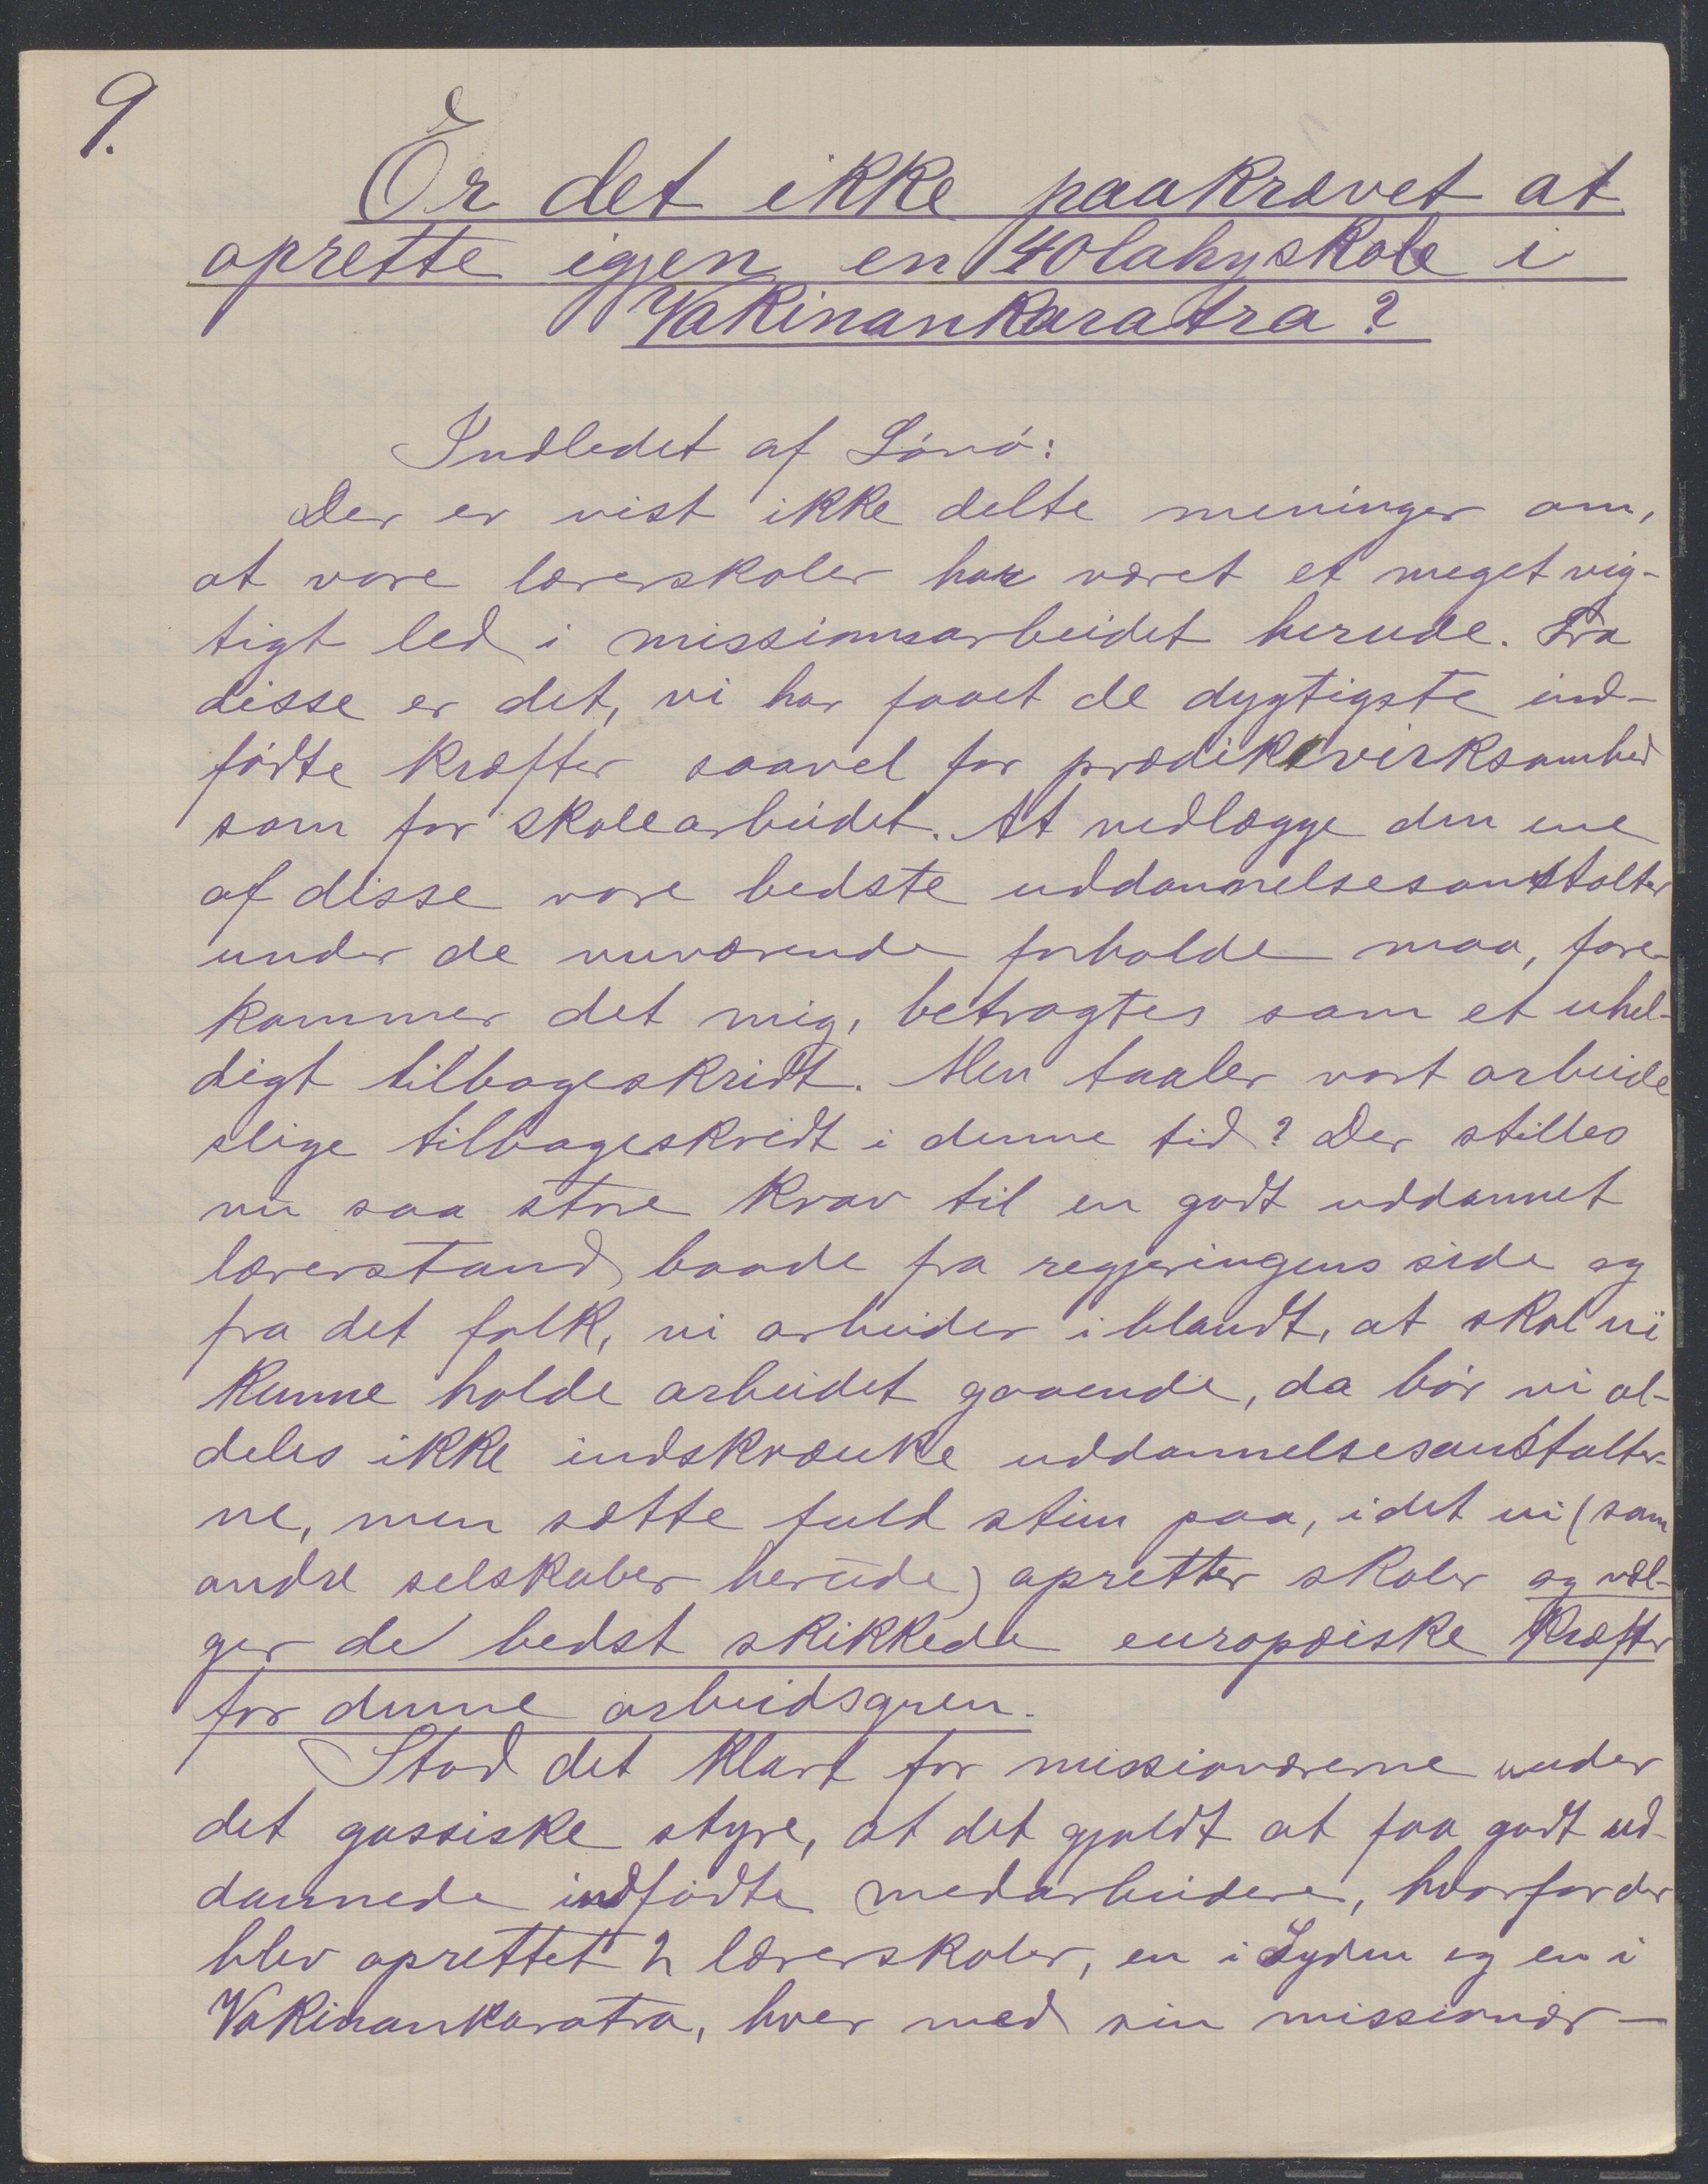 9.
Er det ikke paakrævet at
oprette igjen en 40lahyskole i
Vakinankaratra?
Indledet af Lönö:
Der er vist ikke delte meninger om,
at vore lærerskoler har været et meget vig-
tigt led i missionsarbeidet herude. Fra
disse er det, vi har faaet de dygtigste ind-
fødte kræfter saavel for prædikevirksomhed
som for skolearbeidet. At nedlægge den ene
af disse vore bedste uddannelsesanstalter
under de nuværende forholde maa, fore-
kommer det mig, betragtes som et uhel-
digt tilbageskridt. Men taaler vort arbeide
slige tilbageskridt i denne tid? Der stilles
nu saa store krav til en godt uddannet
lærerstand, baade fra regjeringens side og
fra det folk, vi arbeider iblandt, at skal vi
kunne holde arbeidet gaaende, da bör vi al-
deles ikke indskrænke uddannelsesanstalter-
ne, men sætte fuld stim paa, idet vi (som
andre selskaber herude) opretter skoler og væl-
ger de bedst skikkede europæiske kræfter
for denne arbeidsgren.
Stod det klart for missionærerne under
det gassiske styre, at det gjaldt at faa godt ud-
dannede indfødte medarbeidere, hvorfor der
blev oprettet 2 lærerskoler, en i Syden og en i
Vakinankaratra, hver med sin missionær-